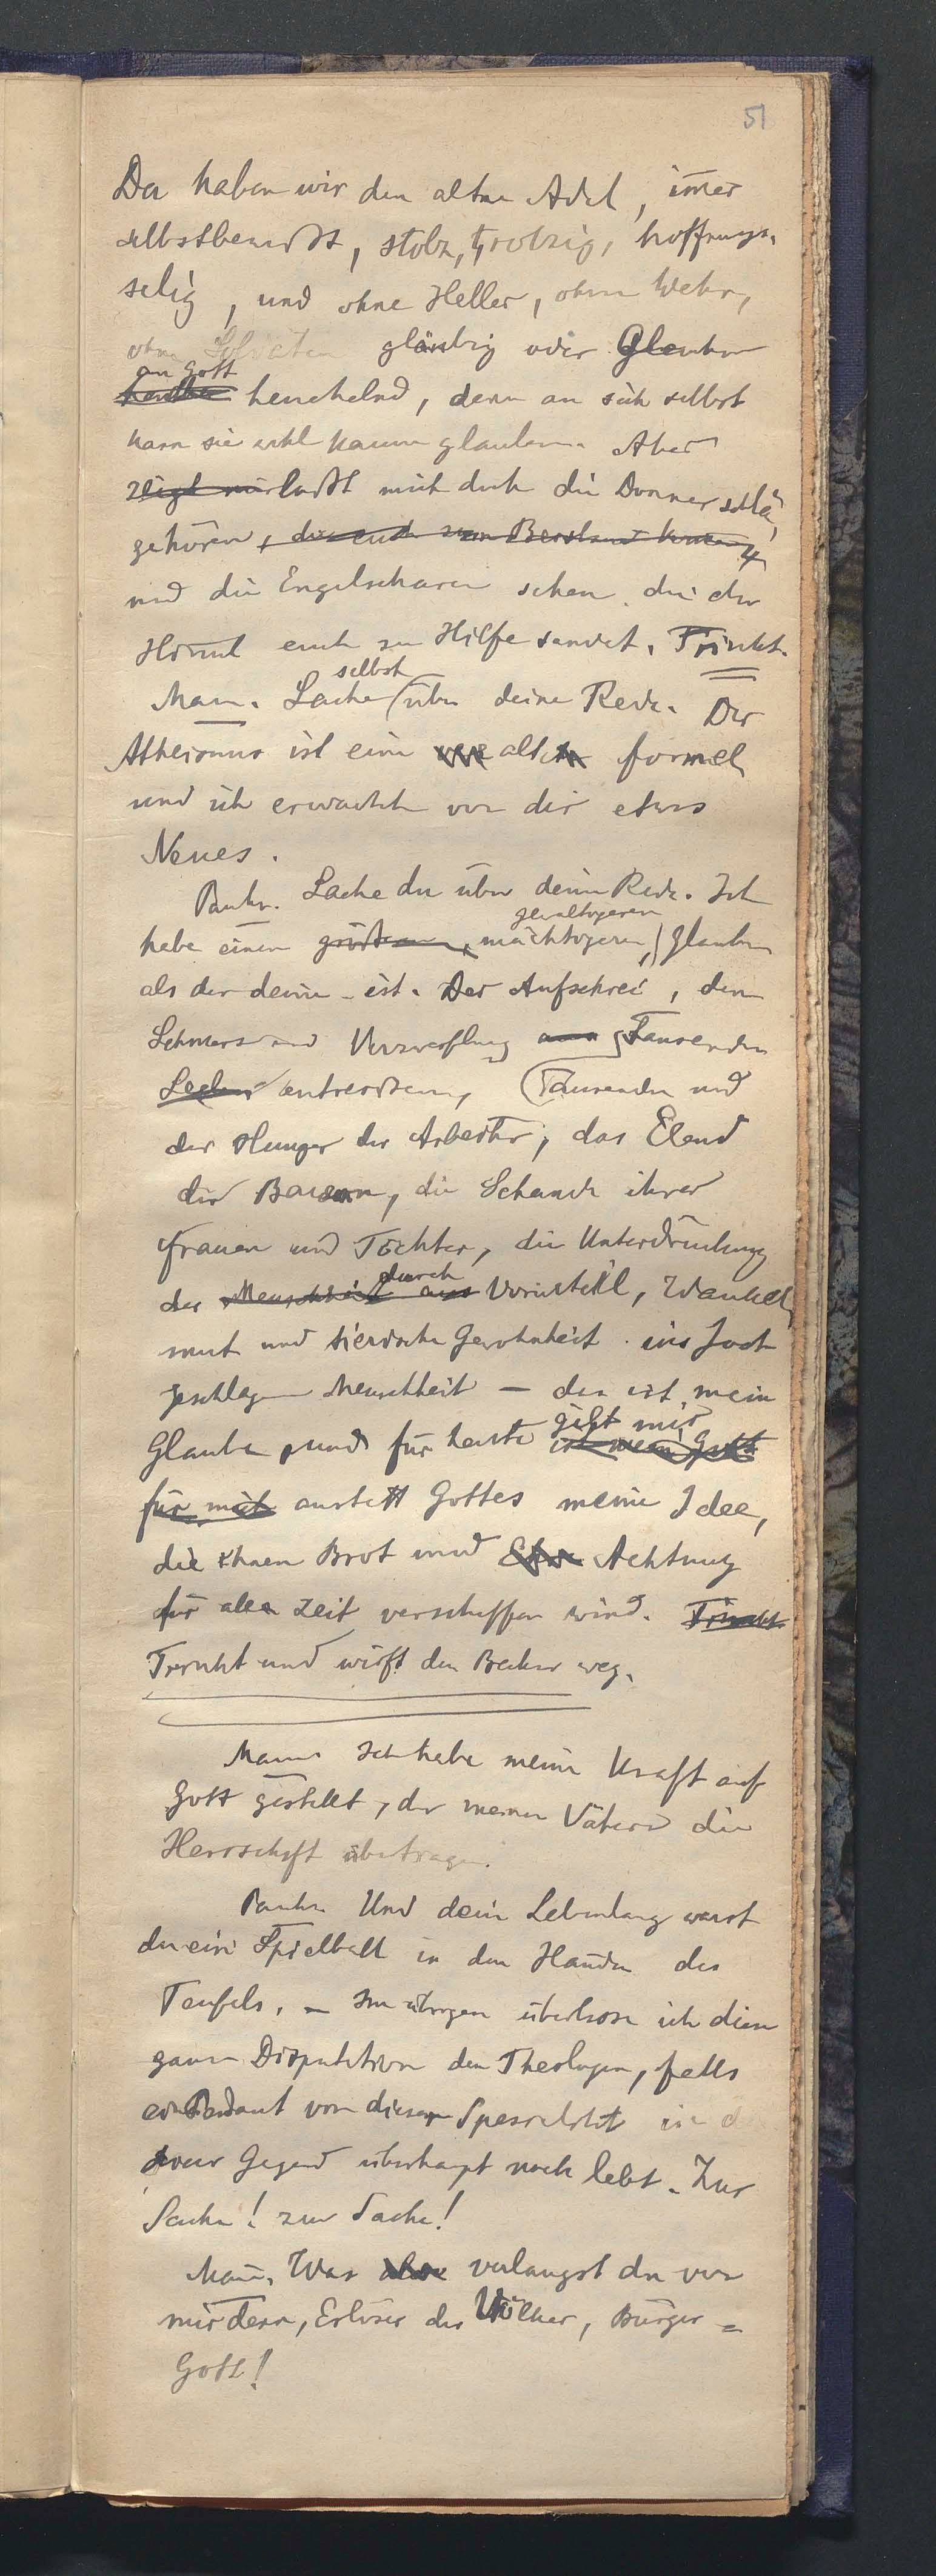 51
Da haben wir den alten Adel, im̄er
selbstbewußt, stolz, trotzig, hoffnungs-
selig, und ohne Heller, ohne Wehr,
ohne Soldaten gläubig oder Glauben
an Gott
heuchelnd, denn an sich selbst
kann sie wohl kaum glauben. Aber
zeigt mir laßt mich doch die Donnerschlä-
ge hören,
und die Engelscharen sehen, die der
Him̄el euch zu Hilfe sendet. Trinkt.
selbst
Man̄. Lache über deine Rede. Der
Atheismus ist eine alte formel
und ich erwartete von dir etwas
Neues.
Pankr. Lache du über deine Rede. Ich
gewaltigeren
habe einen größeren, mächtigeren, Glauben
als der deine ist. Der Aufschrei, den
Schmerz und Verzweiflung Tausenden
entreißen, Tausenden und
der Hunger der Arbeiter, das Elend
der Bauern, die Schande ihrer
Frauen und Töchter, die Unterdrückung
durch
der Menschheit aus Vorurteil, Wankel-
mut und tierische Gewohnheit ins Joch
geschlagene Menschheit — das ist mein
gibt mir
Glaube, und für heute ist mein Gott
für mich anstatt Gottes meine Idee,
die ihnen Brot und Ehre Achtung
für alle Zeit verschaffen wird. Trinkt
Trinkt und wirft den Becher weg.
Man̄. Ich habe meine Kraft auf
Gott gestellt, der meinen Vätern die
Herrschaft übertragen.
Pankr. Und dein Lebenlang warst
du ein Spielball in den Händen des
Teufels. – Im übrigen überlasse ich diese
ganze Disputation den Theologen, falls
ein Pedant von dieser Spezialität in
Gegend überhaupt noch lebt. Zur
Sache! zur Sache!
Man̄. Was also verlangst du von
mir denn, Erlöser der Völker, Bürger =
Gott!